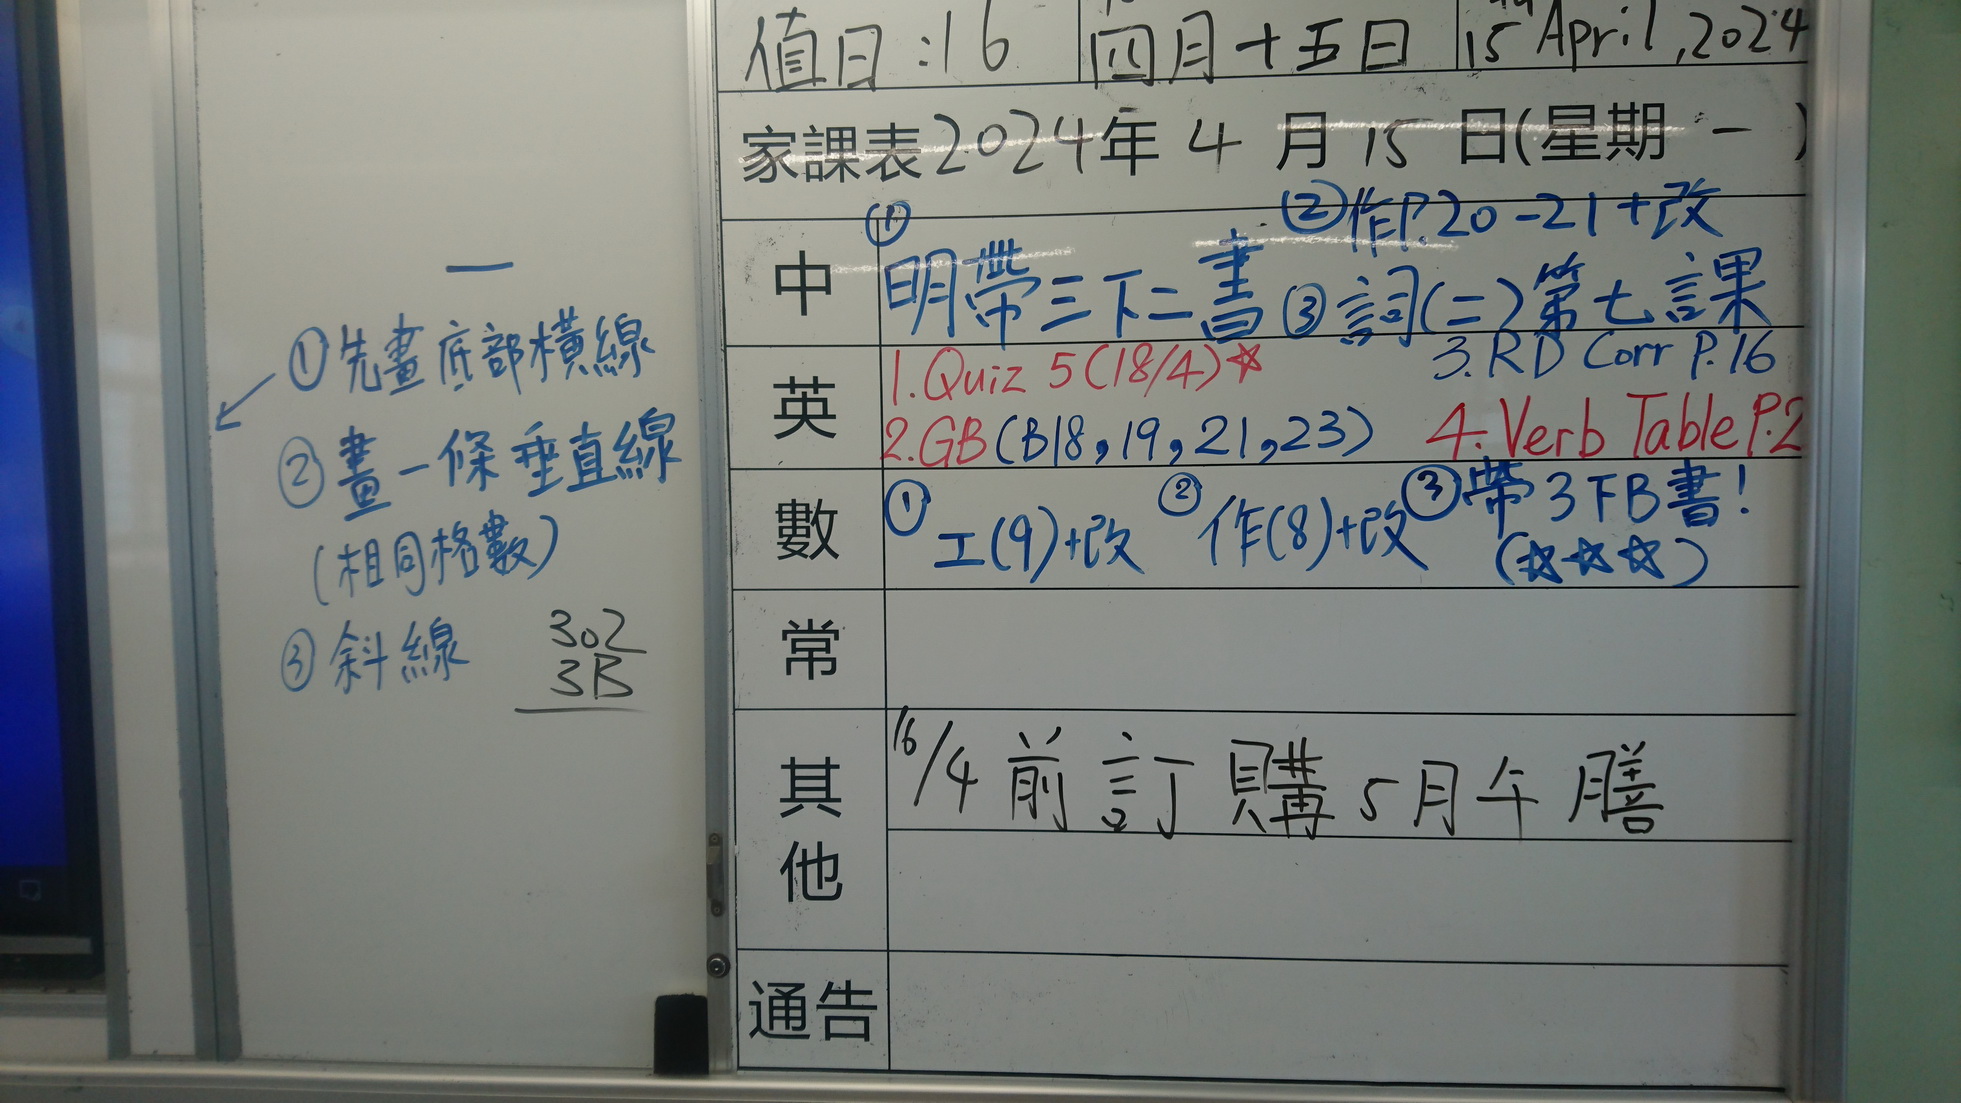 一
①先畫底部橫線
②畫一條垂直線
(相同格數)
③斜線
302
3B
值日:16 四月十五日 15 April, 2024
家課表2024年4月15日(星期一)
中
① ②作P.20-21+改
明帶三下二書 ③詞(二)第七課
英
1.Quiz 5(18/4)☆ 3.RD Corr P.16
2.GB(B18,19,21,23) 4.Verb Table P.2
數
①工(9)+改 ②作(8)+改 ③帶3下B書!
(☆☆☆)
常
其他
16/4前訂購5月午膳
通告